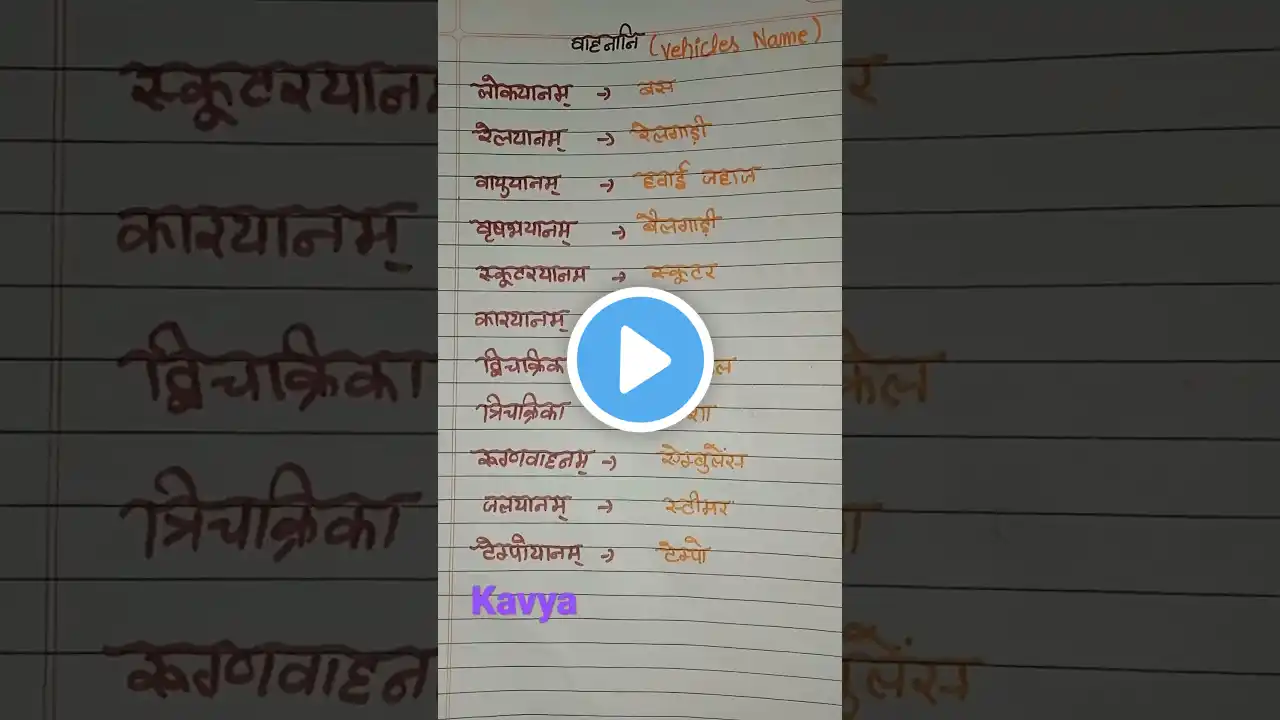 वाहनानि (Vehicles Name)
लोकयानम् → बस
रेलयानम् → रेलगाड़ी
वायुयानम् → हवाई जहाज
वृषभयानम् → बैलगाड़ी
स्कूटरयानम → स्कूटर
कारयानम्
द्विचक्रिका
त्रिचक्रिका
रूग्णवाहनम् → ऐम्बुलेंस
जलयानम् → स्टीमर
टेम्पोयानम् → टेम्पो
Kavya